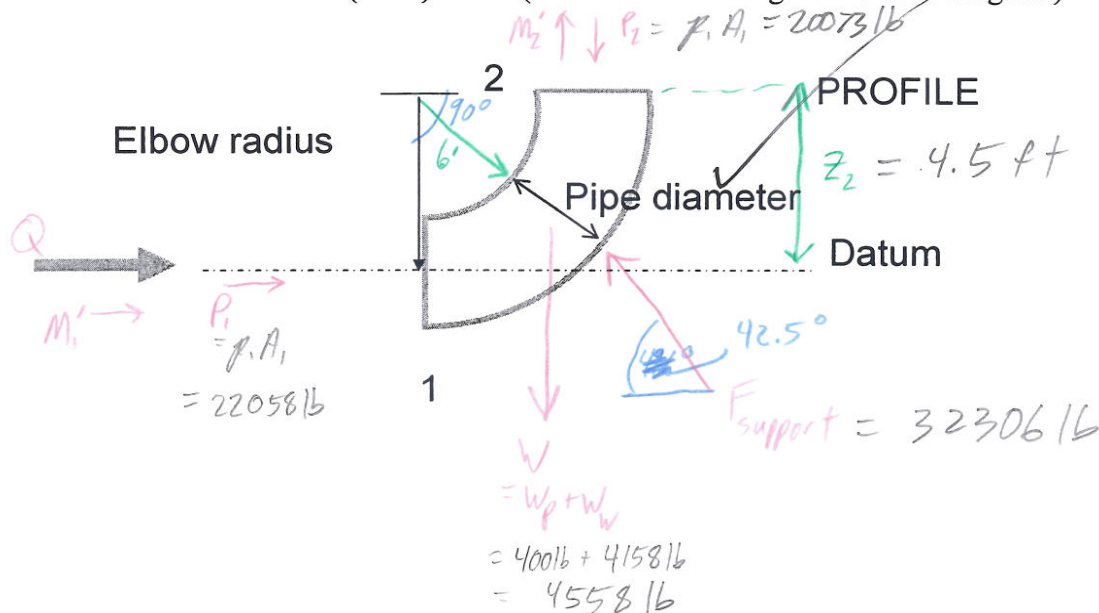 M₂' ↑ ↓ P₂ = p₁A₁ = 20073 lb
2
90°
PROFILE
Elbow radius
6'
Z₂ = 4.5 ft
Pipe diameter
Q
Datum
M₁' →
P₁
= p₁A₁
= 22058 lb
42.5°
1
F support = 32306 lb
W
= Wp + Ww
= 400lb + 4158 lb
= 4558 lb